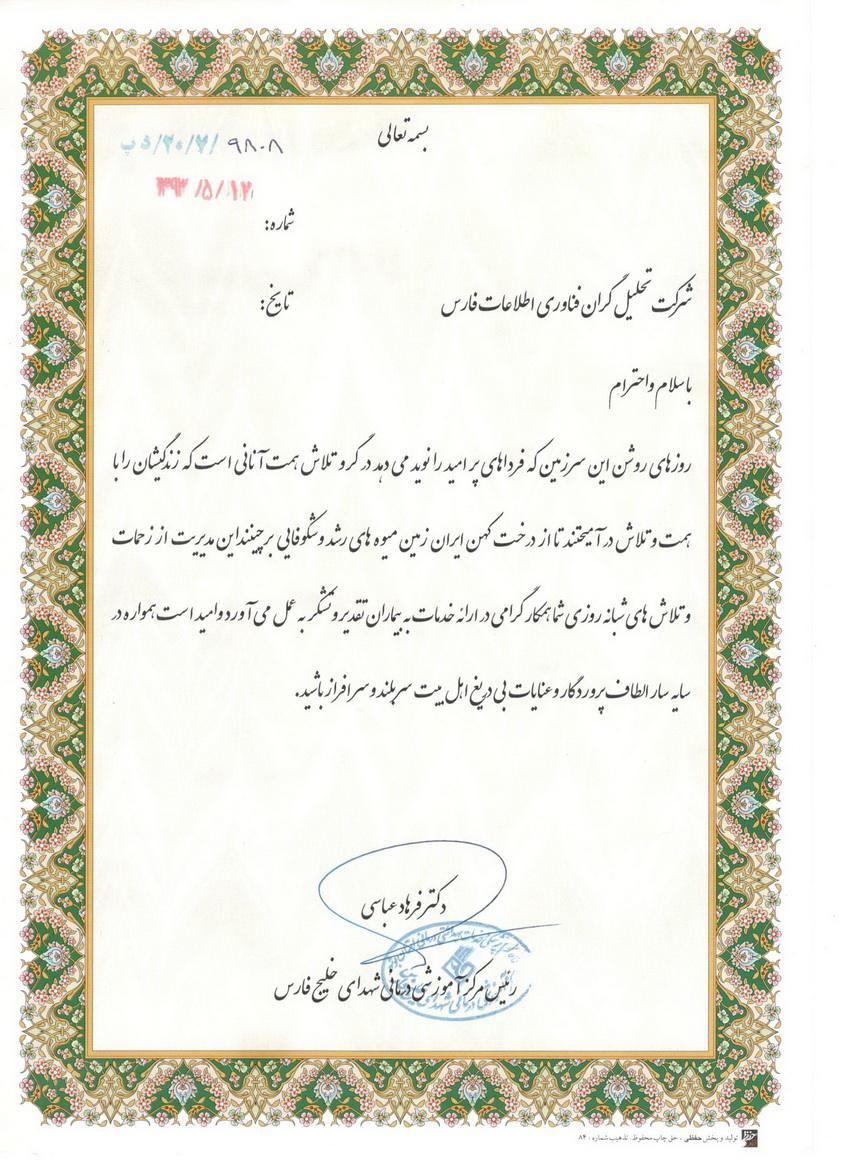 بسمه تعالی
۹۸۰۸ /۲/۲۰/۵پ
۳۹۳ /۵/۱۲
شماره:
شرکت تحلیل گران فناوری اطلاعات فارس
تاریخ:
باسلام واحترام
روزهای روشن این سرزمین که فرداهای پر امید را نوید می دهد در گرو تلاش همت آنانی است که زندگیشان را با
همت و تلاش در آمیختند تا از درخت کهن ایران زمین میوه های رشد و شکوفایی برچینند این مدیریت از زحمات
و تلاش های شبانه روزی شما همکار گرامی در ارائه خدمات به بیماران تقدیر و تشکر به عمل می آورد و امید است همواره در
سایه سار الطاف پروردگار و عنایات بی دریغ اهل بیت سربلند و سرافراز باشید.
دکتر فرهاد عباسی
رئیس مرکز آموزشی درمانی شهدای خلیج فارس
تولید و پخش حفظی ، حق چاپ محفوظ. تذهیب شماره : ۸۴